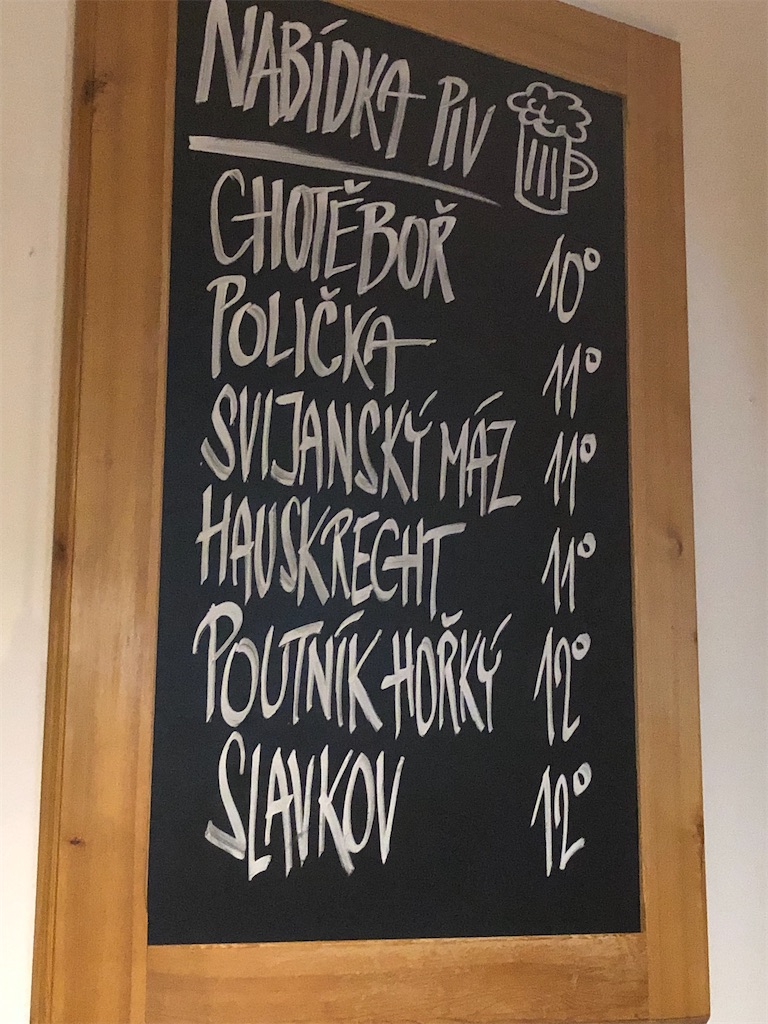 NABÍDKA PIV
CHOTĚBOŘ 10°
POLIČKA 11°
SVIJANSKÝ MÁZ 11°
HAUSKRECHT 11°
POUTNÍK HOŘKÝ 12°
SLAVKOV 12°